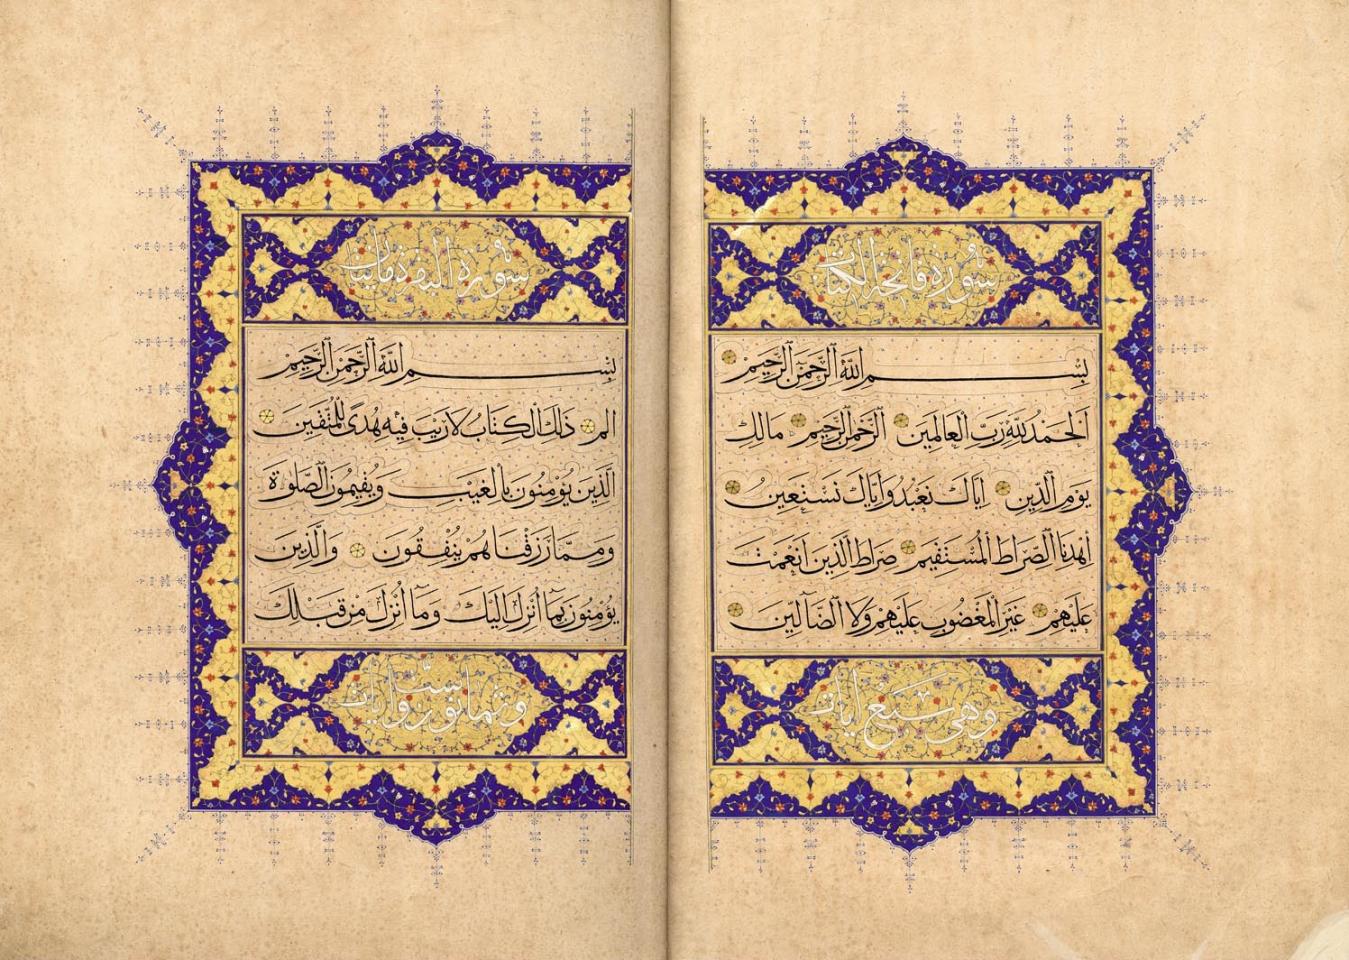 سورة فاتحة الكتاب
بِسْمِ اللّٰهِ الرَّحْمٰنِ الرَّحِيمِ
اَلْحَمْدُ لِلّٰهِ رَبِّ الْعَالَمِينَ الرَّحْمٰنِ الرَّحِيمِ مَالِكِ
يَوْمِ الدِّينِ اِيَّاكَ نَعْبُدُ وَاِيَّاكَ نَسْتَعِينُ
اِهْدِنَا الصِّرَاطَ الْمُسْتَقِيمَ صِرَاطَ الَّذِينَ اَنْعَمْتَ
عَلَيْهِمْ غَيْرِ الْمَغْضُوبِ عَلَيْهِمْ وَلَا الضَّآلِّينَ
وهي سبع ايات
سورة البقرة مايتان
بِسْمِ اللّٰهِ الرَّحْمٰنِ الرَّحِيمِ
الم ذٰلِكَ الْكِتَابُ لَا رَيْبَ فِيهِ هُدًى لِلْمُتَّقِينَ
الَّذِينَ يُؤْمِنُونَ بِالْغَيْبِ وَيُقِيمُونَ الصَّلٰوةَ
وَمِمَّا رَزَقْنَاهُمْ يُنْفِقُونَ وَالَّذِينَ
يُؤْمِنُونَ بِمَآ اُنْزِلَ اِلَيْكَ وَمَآ اُنْزِلَ مِنْ قَبْلِكَ
وثمانون وست ايات